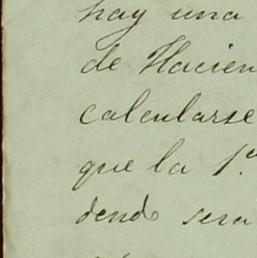 hay una
de Hacien
calcularse
que la 1ª
dendo sera